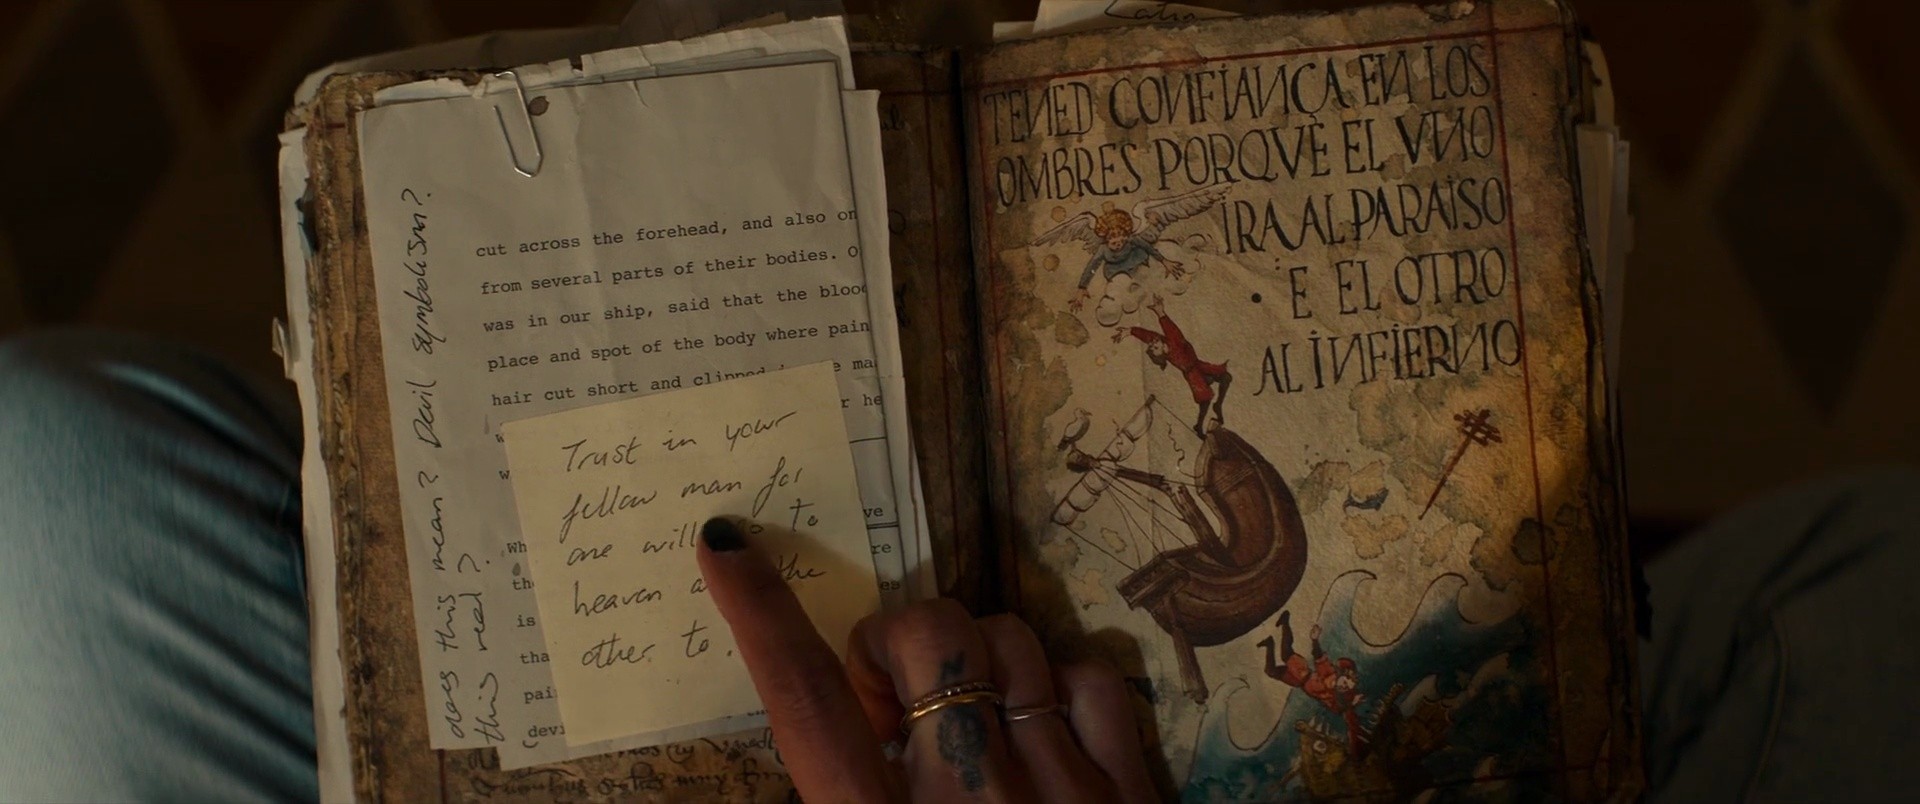 does this mean? Devil symbolism?
this real?
cut across the forehead, and also on
from several parts of their bodies. O
was in our ship, said that the blood
place and spot of the body where pain
hair cut short and clipped ma
r he
w
w
ve
Wh re
th es
is
tha
pai
(devi
Trust in your
fellow man for
one will to
heaven the
other to .
TENED CONFIANÇA EN LOS
OMBRES PORQVE EL VNO
IRA AL PARAISO
• E EL OTRO
AL INFIERNO